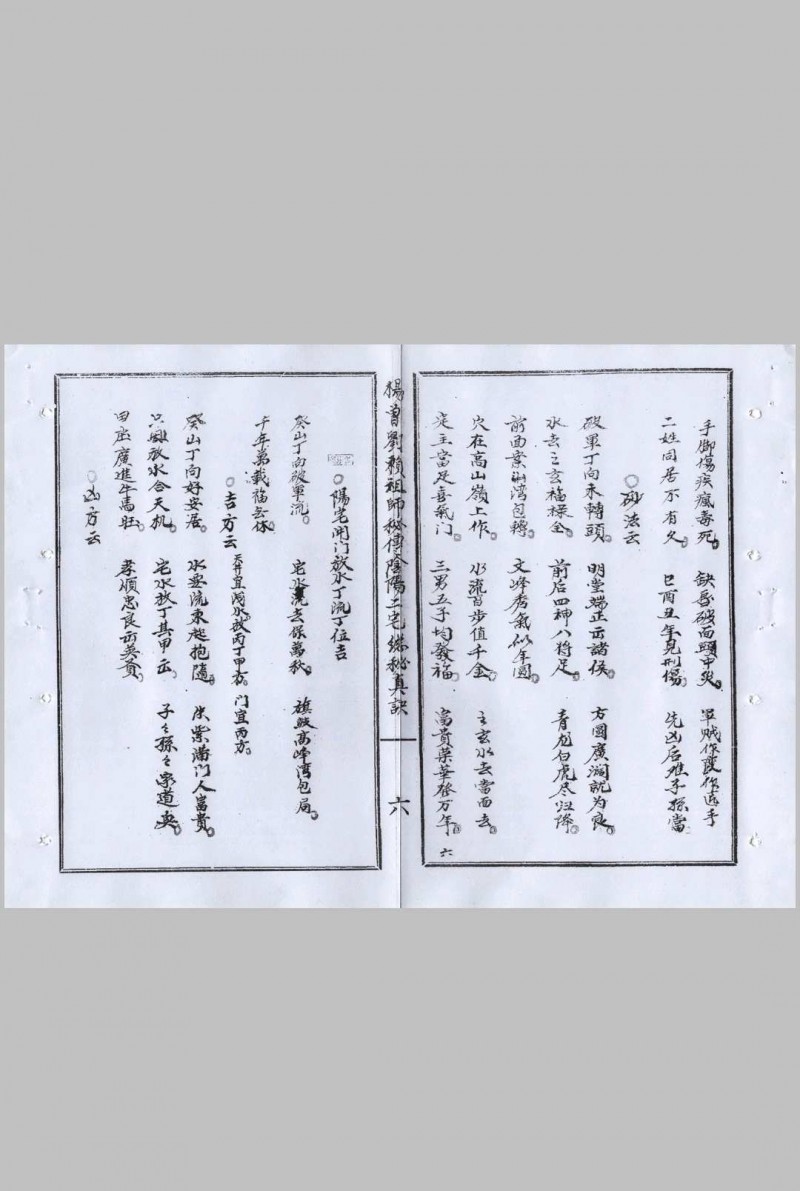 手脚傷疾瘋毒死。 缺唇破面頭中災。 軍賊作反作逃手
二姓同居不有久。 巳酉丑年見刑傷。 先凶后难子孫當
○砂法云
破軍丁向未轉頭 明堂端正出諸侯 方圓廣濶就为良
水去之玄福祿全 前后四神八將足。 青龙白虎尽归降。
前面案山湾包轉。 文峰秀氣似午圓
穴在高山嶺上作。 水流百步值千金。 之玄水去當面去。
定主富足喜氣门 三男五子均發福。 富貴荣華歲万年。
六
楊曾劉賴祖師秘傳陰陽二宅総秘真訣
六
○陽宅開门放水丁流丁位吉
癸山丁向破軍流。 宅水流去保萬秋。 旗皷高峰湾包局。
千年萬載福無休。
○吉方云 天井宜濶水放丙丁甲方。 门宜丙方。
癸山丁向好安居。 水要流東起抱隨。 朱紫满门人富貴。
只 放水合天机。 宅水放丁其甲云。 子々孫々家道
田庄廣進牛馬旺。 孝順忠良 英賢。
○凶方云